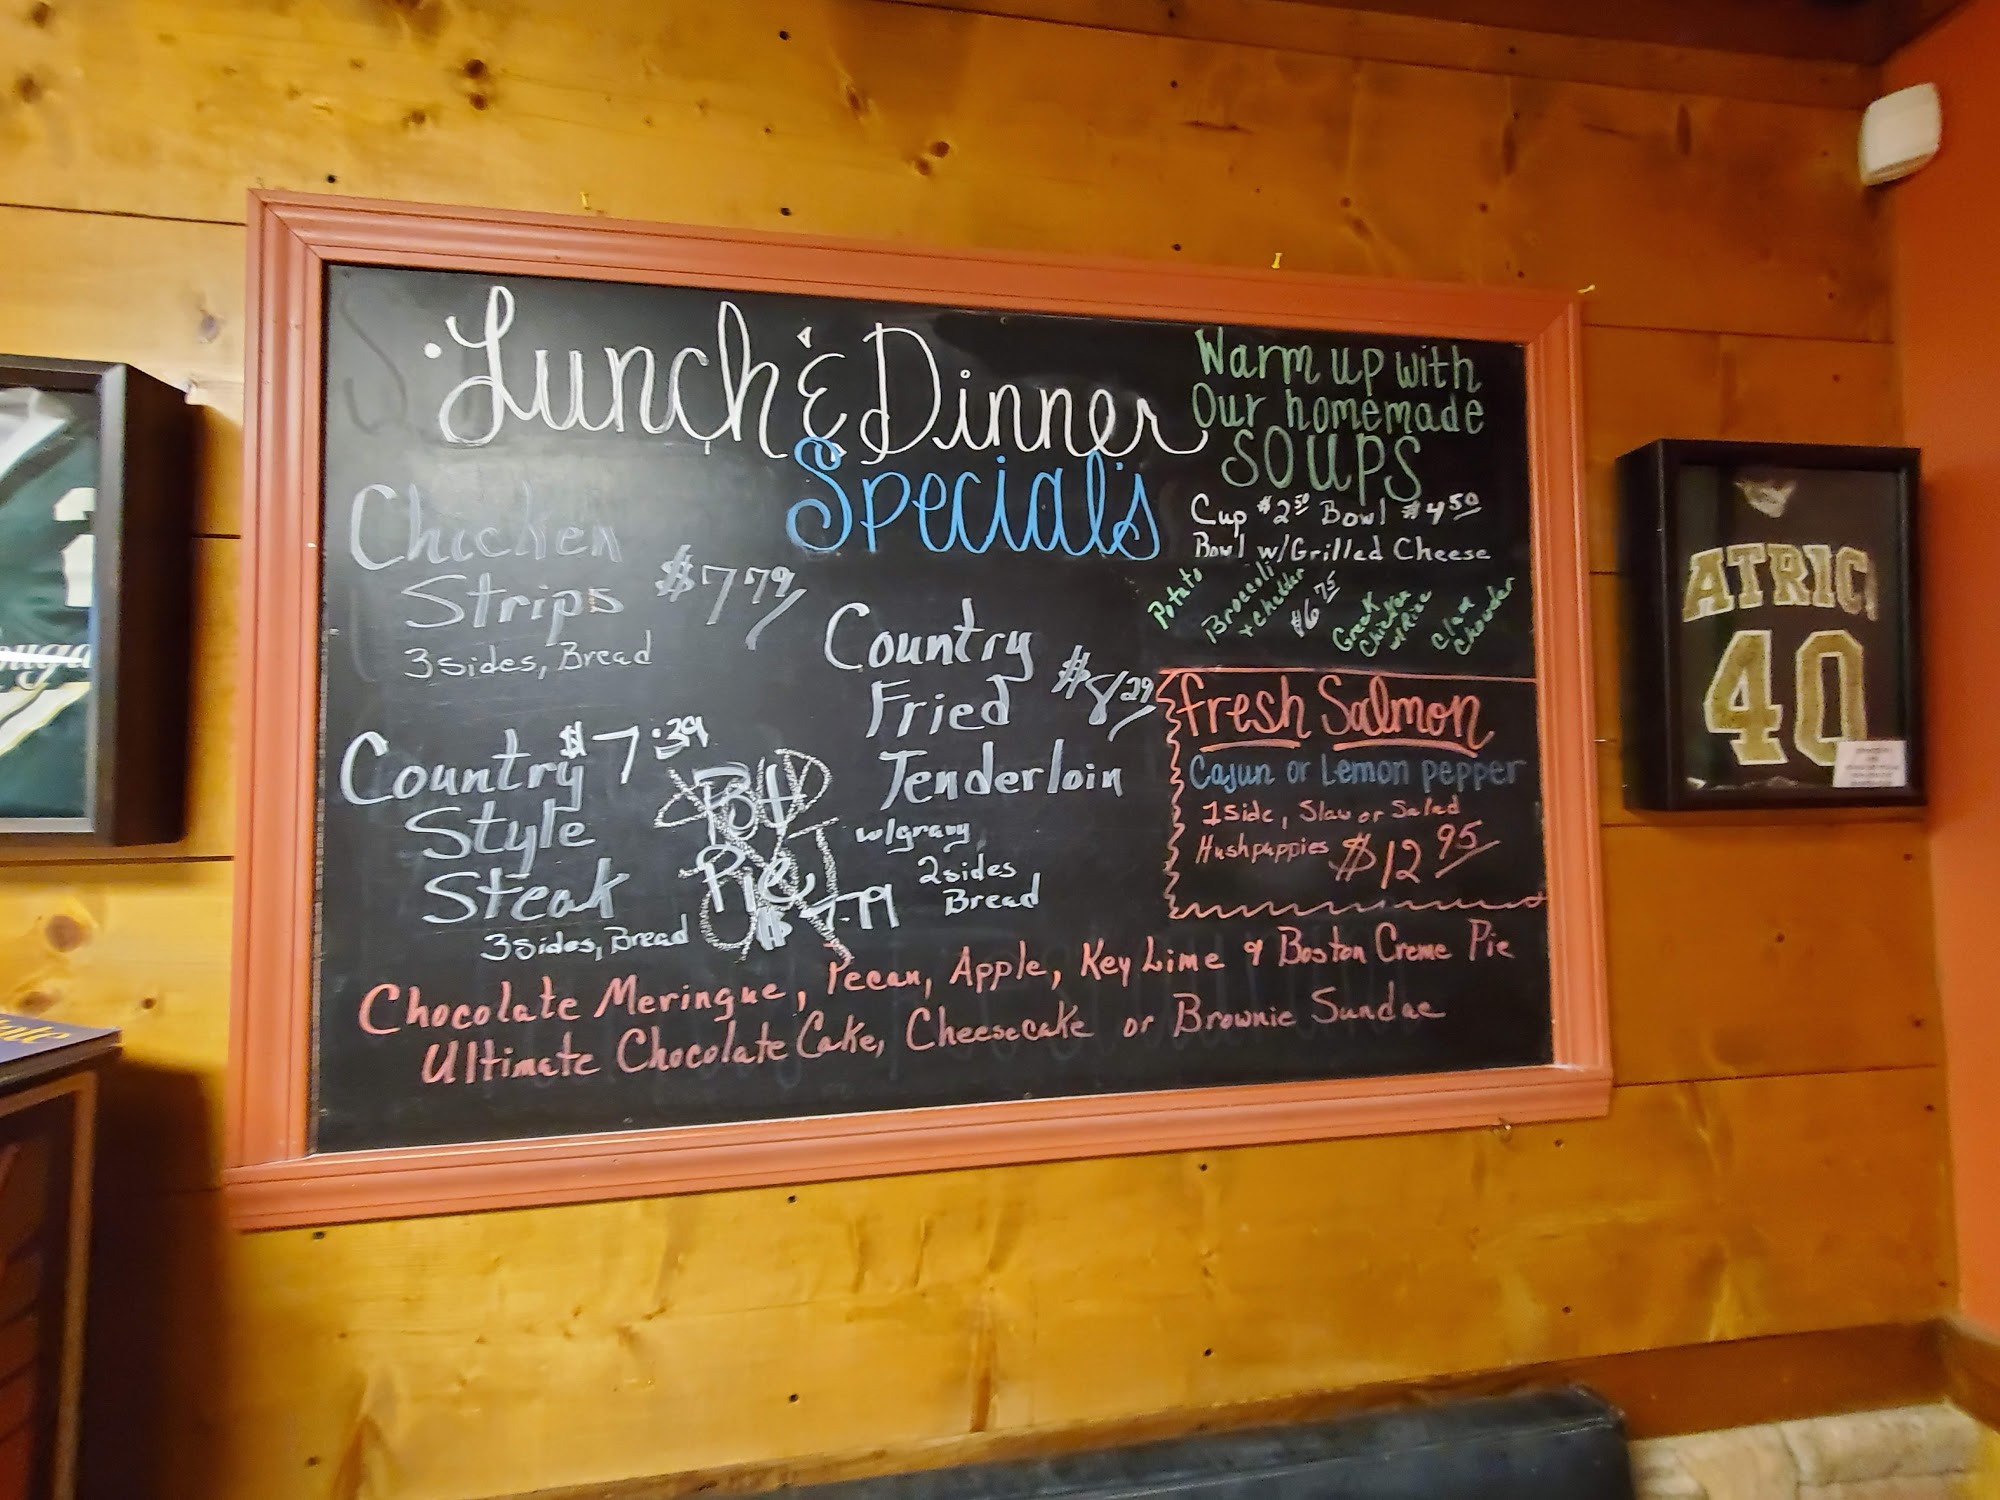 Lunch & Dinner
Special's
Chicken
Strips $7.79
3 sides, Bread
Country $7.39
Style
Steak
3 sides, Bread
Pot
Pie
$7.79
Country
Fried $8.29
Tenderloin
w/gravy,
2 sides
Bread
Warm up with
Our homemade
SOUPS
Cup $2.50 Bowl $4.50
Bowl w/Grilled Cheese
$6.75
Potato
Broccoli
+ chedder
Greek
Chicken
w/Rice
Clam
Chowder
fresh Salmon
Cajun or Lemon pepper
1 side, Slaw or Salad
Hushpuppies $12.95
Chocolate Meringue, Pecan, Apple, Key Lime & Boston Creme Pie
Ultimate Chocolate Cake, Cheesecake or Brownie Sundae
ATRIC
40